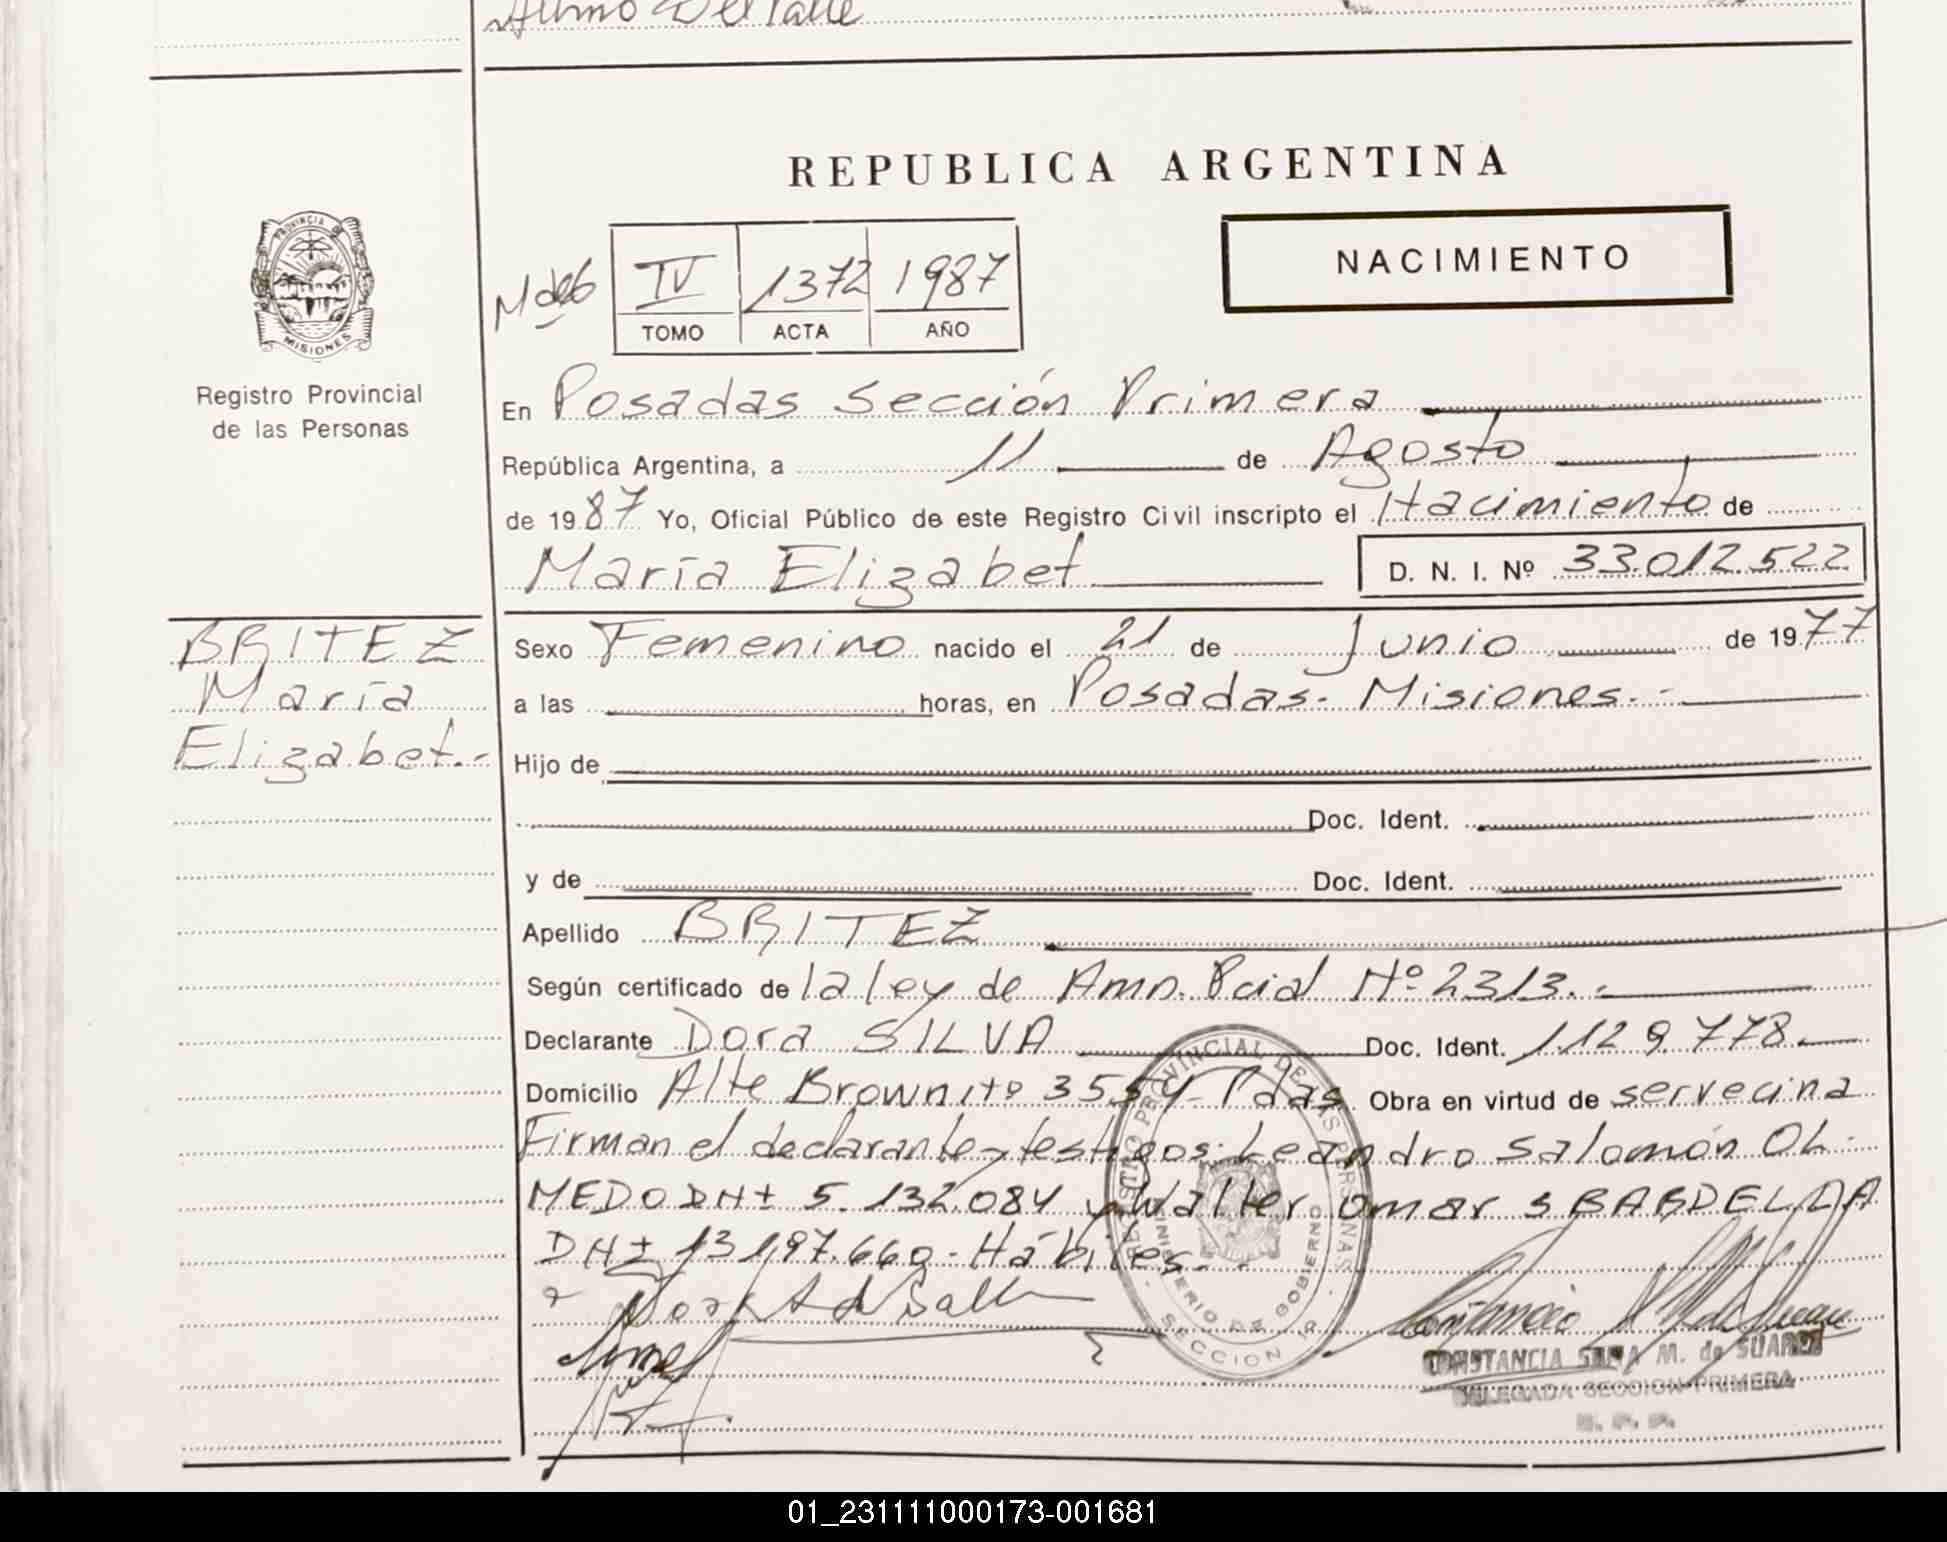 Del Valle
REPUBLICA ARGENTINA
NACIMIENTO
PROVINCIA DE
MISIONES
Registro Provincial
de las Personas
IV 1372 1987
TOMO ACTA AÑO
En Posadas Sección Primera
República Argentina, a 11 de Agosto
de 1987 Yo, Oficial Público de este Registro Civil inscripto el Nacimiento de
María Elizabet D. N. I. Nº 33.012.522
BRITEZ
María
Elizabet.-
Sexo Femenino nacido el 21 de Junio de 1977
a las horas, en Posadas- Misiones.-
Hijo de
Doc. Ident.
y de Doc. Ident.
Apellido BRITEZ
Según certificado de la ley de Amn. Pcial Nº 2313.-
Declarante Dora SILVA Doc. Ident. 1.129.778.
Domicilio Alte Brown nº 3554- Pdas Obra en virtud de ser vecina
Firman el declarante y testigos: Leandro Salomón OL-
MEDO DNI 5.132.084 y Walter Omar SBARDELLA
DNI 13.197.660- Hábiles.-
REGISTRO PROVINCIAL DE LAS PERSONAS
MINISTERIO DE GOBIERNO
SECCION
CONSTANCIA SARA M. de SUAREZ
DELEGADA SECCION PRIMERA
01_231111000173-001681